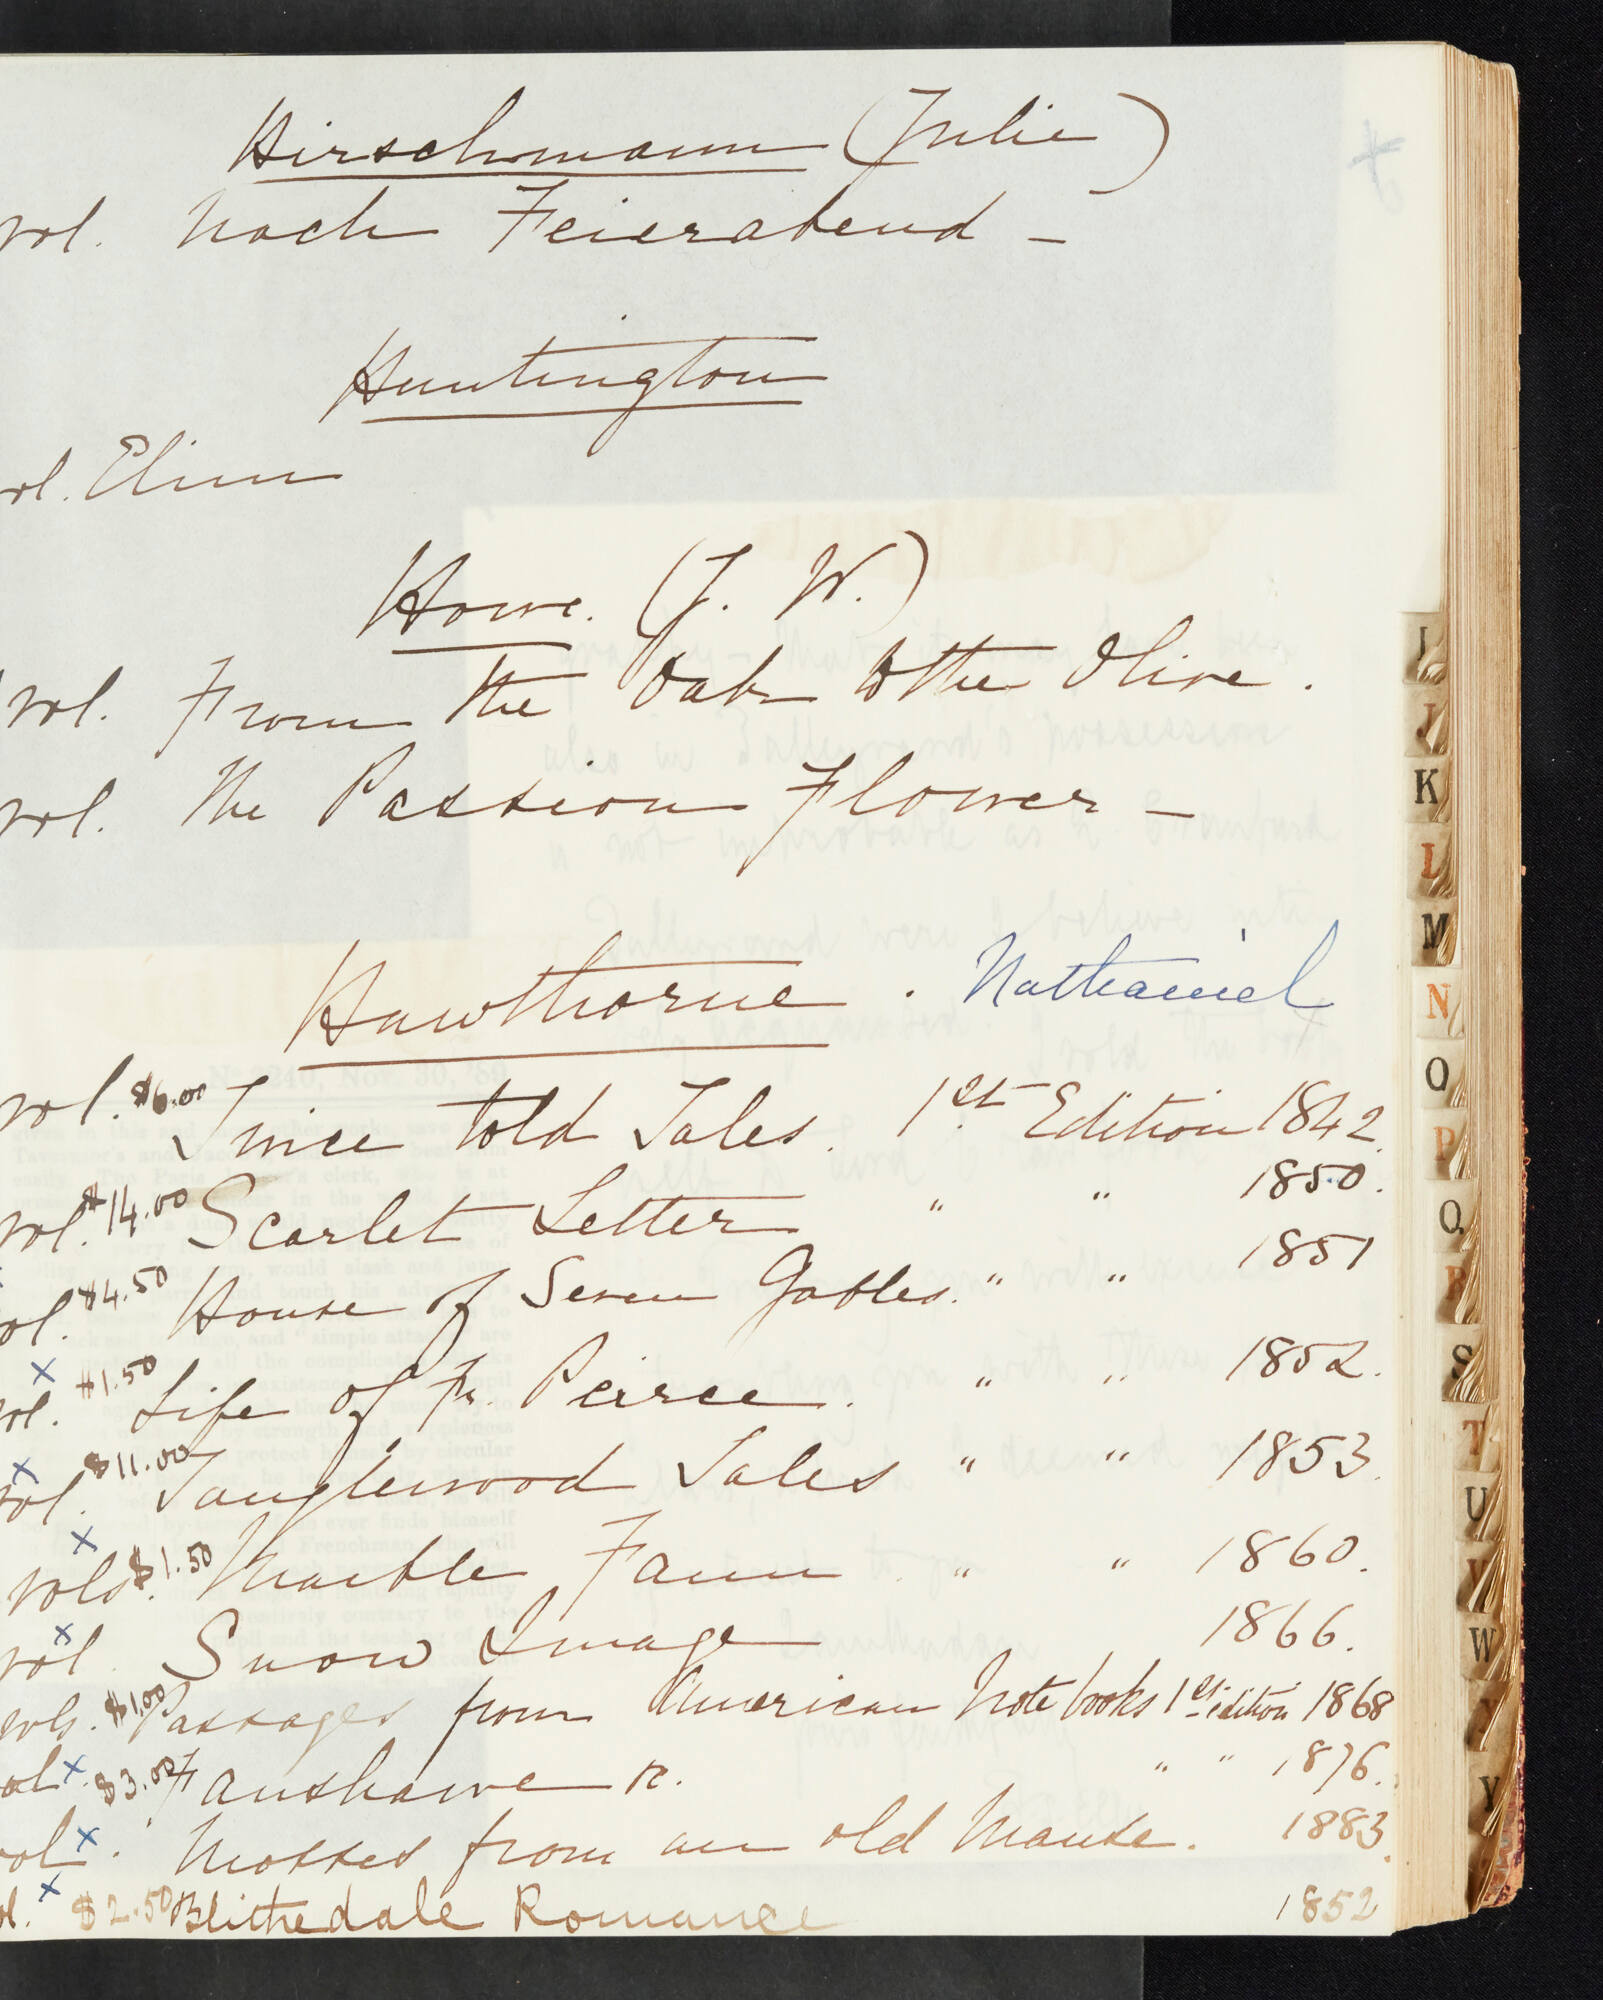 Hirschmann (Julie)
vol. Nach Feierabend -
Huntington
vol. Elim
Howe. (J. W.)
vol. From the Oak to the Olive.
vol. The Passion Flower -
Hawthorne. Nathaniel
vol. $6.00 Twice told Tales. 1st Edition 1842.
vol. $14.00 Scarlet Letter " " 1850.
vol. $4.50 House of Seven Gables. " " 1851
x vol. $1.50 Life of Fr. Peirce. " " 1852.
x vol. $11.00 Tanglewood Tales " " 1853.
x vols. $1.50 Marble Faun " " 1860.
x vol Snow Image 1866.
vols. $1.00 Passages from American Note books 1st edition 1868
vol x. $3.00 Fanshawe " " 1876.
vol x. Mosses from an old Manse. 1883.
vol. x $2.50 Blithedale Romance 1852
I
J
K
L
M
N
O
P
Q
R
S
T
U
V
W
X
Y